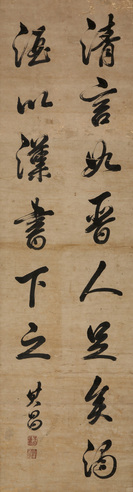 清言如晉人足矣濁
酒以漢書下之
其昌